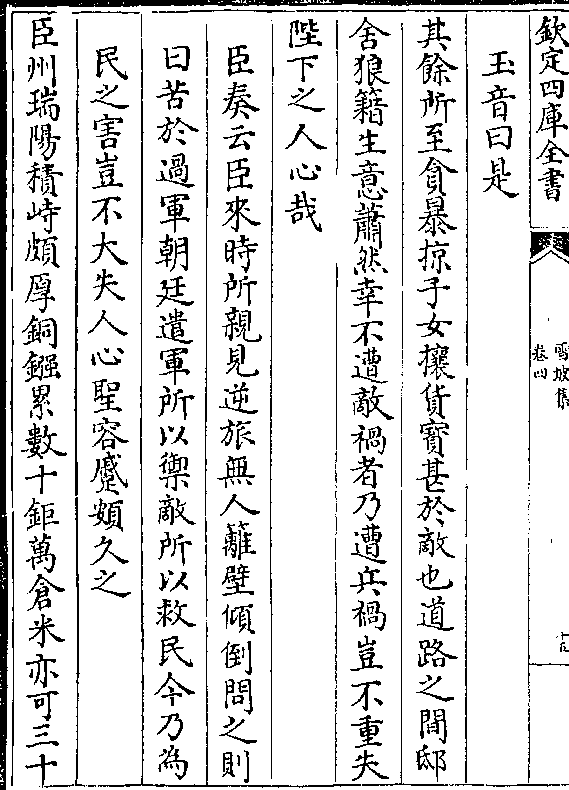 欽定四庫全書
雪坡集
卷四
玉音曰是
其餘所至貪暴掠子女攘貨寳甚於敵也道路之間邸
舍狼籍生意蕭然幸不遭敵禍者乃遭兵禍豈不重失
陛下之人心哉
臣奏云臣來時所親見逆旅無人籬壁傾倒問之則
曰苦於過軍朝廷遣軍所以禦敵所以救民今乃為
民之害豈不大失人心聖容蹙頞久之
臣州瑞陽積峙頗厚銅鏹累數十鉅萬倉米亦可三十